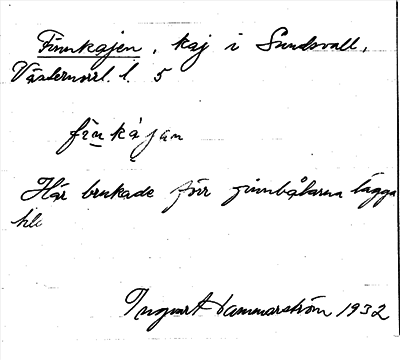 Finnkajen, kaj i Sundsvall,
Västernorrl. l. 5
finkajan
Här brukade förr finnbåtarna lägga
till
Ingmart Hammarström 1932